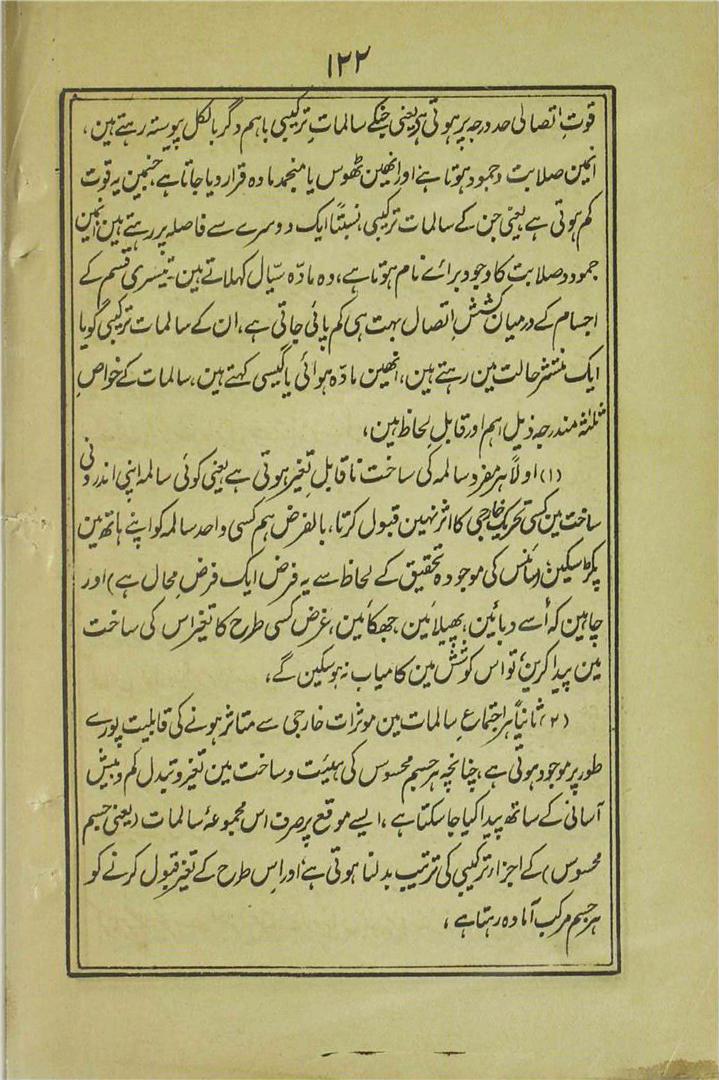 ۱۲۲
قوتِ اتصالی حد درجہ پر ہوتی ہی، یعنی جنکے سالماتِ ترکیبی باہم دگر بالکل پیوستہ رہتے ہین،
انمین صلابت و جمود ہوتا ہے اور انھین ٹھوس یا منجمد مادہ قرار دیا جاتا ہے، جنمین یہ قوت
کم ہوتی ہے، یعنی جن کے سالمات ترکیبی، نسبتًا ایک دوسرے سے فاصلہ پر رہتے ہین، انمین
جمود و صلابت کا وجود برائے نام ہوتا ہے، وہ مادّہ سیّال کہلاتے ہین۔ تیسری قسم کے
اجسام کے درمیان کششِ اتصال بہت ہی کم پائی جاتی ہے، ان کے سالمات ترکیبی گویا
ایک منتشر حالت مین رہتے ہین، انھین مادّہ ہوائی یا گیسی کہتے ہین، سالمات کے خواصِ
ثلٰثہ مندرجہ ذیل اہم اور قابلِ لحاظ ہین،
(۱) اولاً ہر مفرد سالمہ کی ساخت ناقابلِ تغیر ہوتی ہے یعنی کوئی سالمہ اپنی اندرونی
ساخت مین کسی تحریکِ خارجی کا اثر نہین قبول کرتا، بالفرض ہم کسی واحد سالمہ کو اپنے ہاتھ مین
پکڑ سکین، (سائنس کی موجودہ تحقیق کے لحاظ سے یہ فرض ایک فرضِ محال ہے) اور
چاہین کہ اُسے دبائین، پھیلائین، جھکائین، غرض کسی طرح کا تغیر اس کی ساخت
مین پیدا کرین، تو اس کوشش مین کامیاب نہ ہو سکین گے،
(۲) ثانیاً ہر اجتماعِ سالمات مین موثرات خارجی سے متاثر ہونے کی قابلیت پورے
طور پر موجود ہوتی ہے، چنانچہ ہر جسم محسوس کی ہیئت و ساخت مین تغیر و تبدل کم و بیش
آسانی کے ساتھ پیدا کیا جا سکتا ہے، ایسے موقع پر صرف اس مجموعۂ سالمات (یعنی جسم
محسوس) کے اجزار ترکیبی کی ترتیب بدلنا ہوتی ہے، اور اس طرح کے تغیر قبول کرنے کو
ہر جسم مرکب آمادہ رہتا ہے،